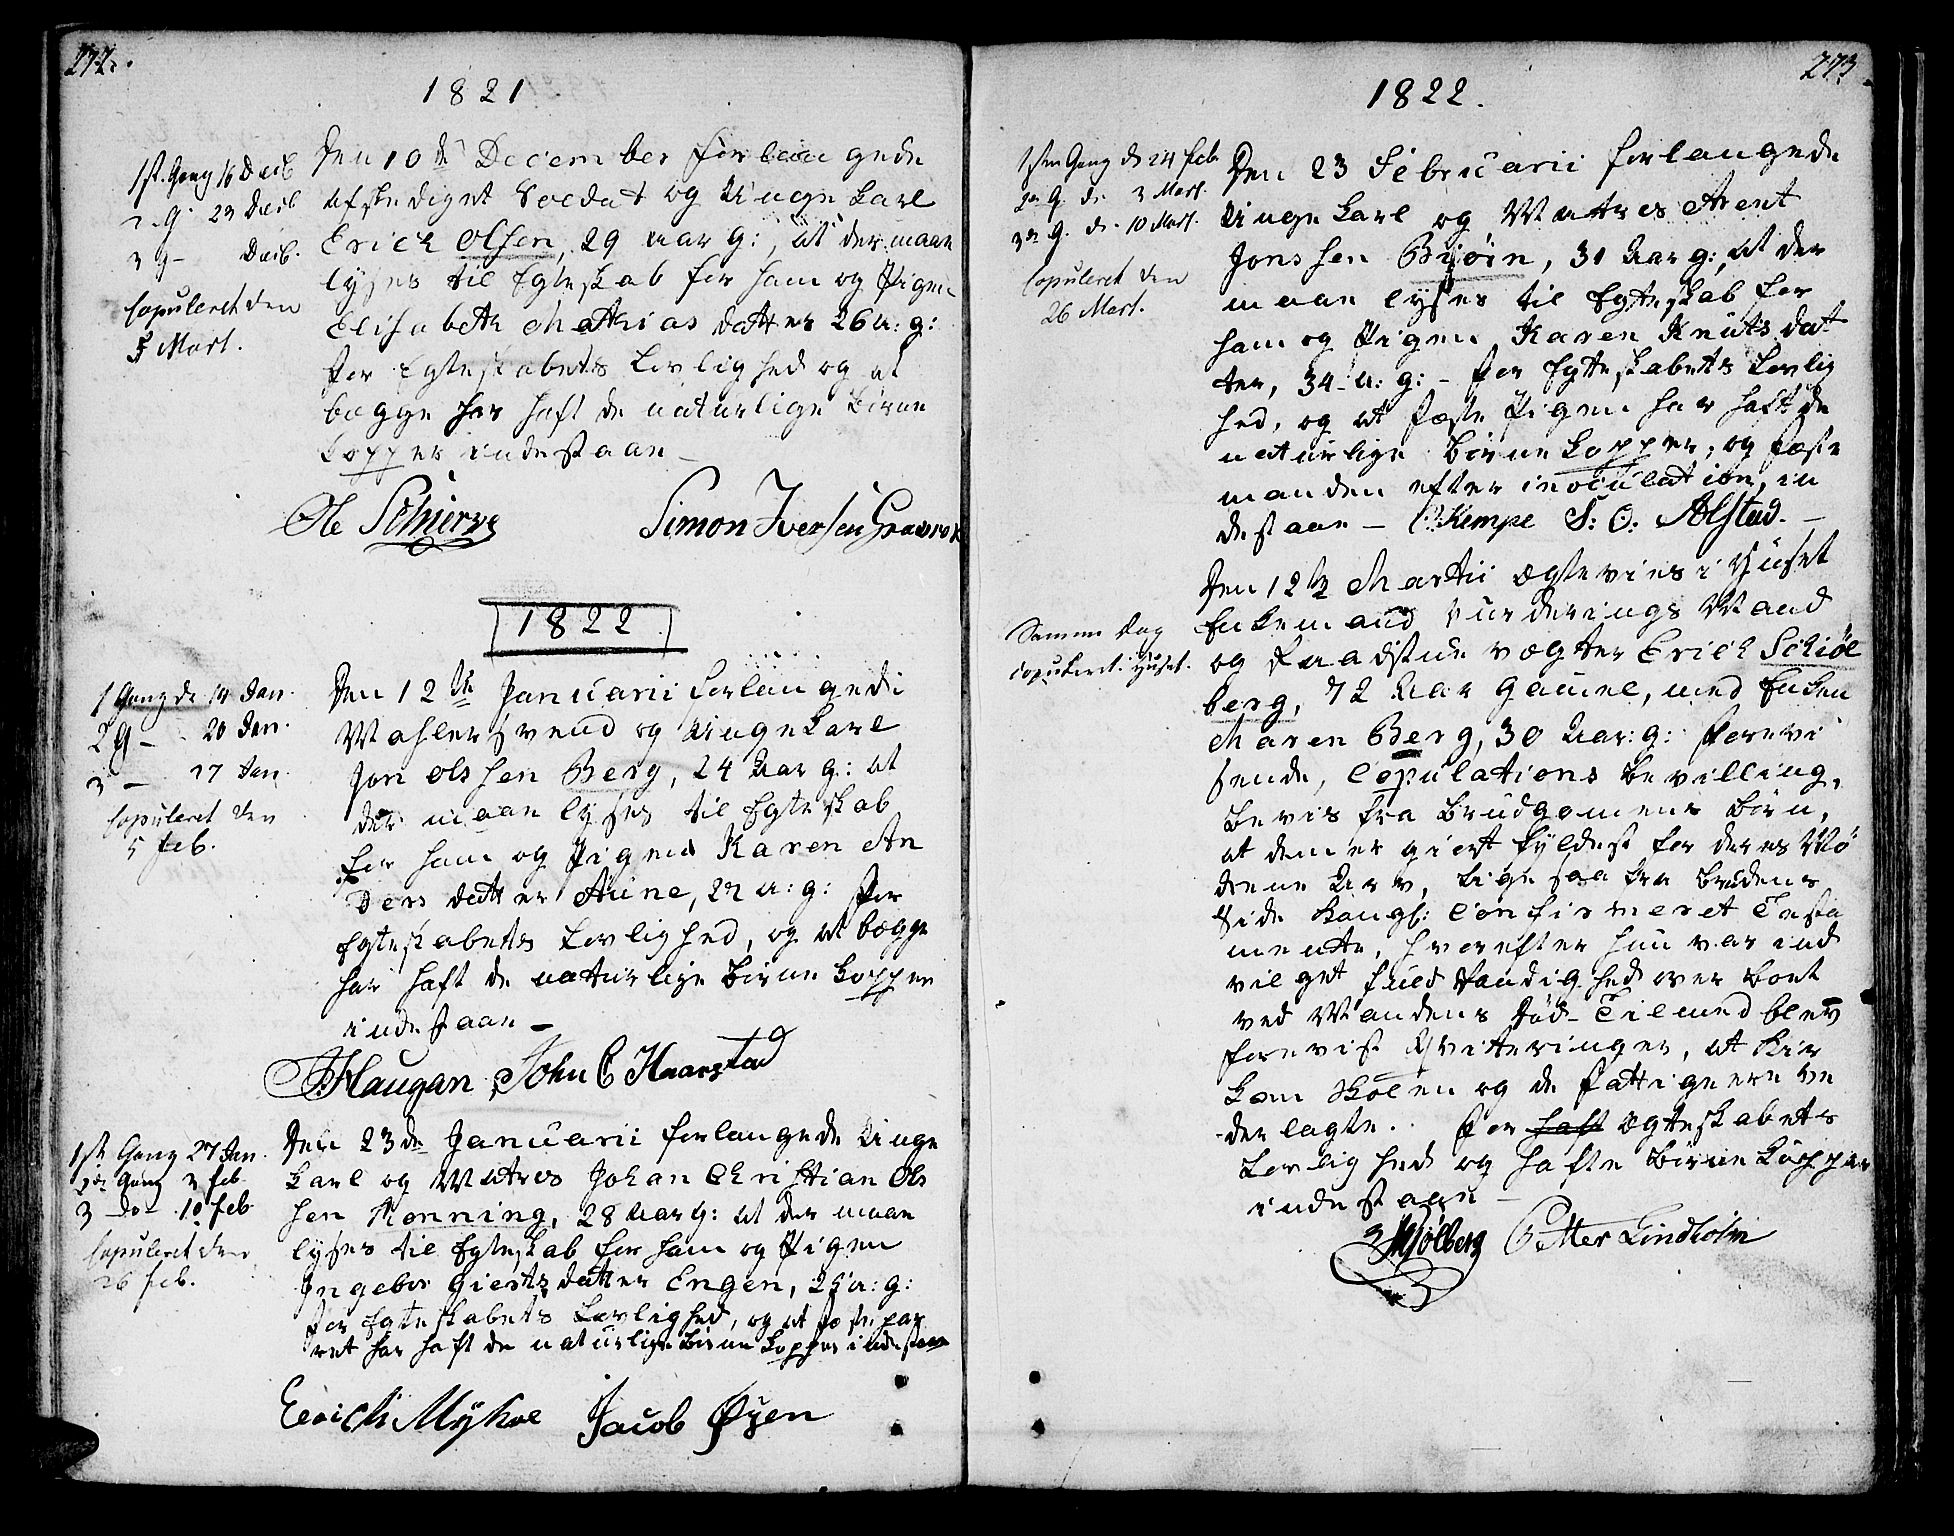 272.
1821
1st. Gang 16 Decb
2. G. 23 Decb
3 G - Decb.
Copuleret den
5 Mart.
Den 10de December forlangede
afskediget Soldat og Unge Karl
Erich Olsen, 29 Aar g:, at der maae
lyses til Egteskab for ham og Pigen
Elisabeth Mathias datter 26 a: g:
For Egteskabets Lovlighed og at
begge har haft de naturlige Børne
Kopper indestaae
Ole Schierve Simon Iversen Graaverk
1822
1 Gang de 14 Jan.
2 g - - 20 Jan.
3 - 27 Jan.
Copuleret den
5 feb.
Den 12te Januarii forlangede
Mahlersvend og Ungekarl
Jon Olssen Berg, 24 Aar g: at
der maae lyses til Egteskab
for ham og Pigen Karen An
ders datter Aune, 22 a: g: For
Egteskabets Lovlighed, og at begge
har haft de naturlige Børne Kopper
indestaae -
Haugan John C Haarstad
1ste Gang 27 Jan.
2de Gang 3 feb.
3 do 10 feb
Copuleret den
26 feb.
Den 23de Januarii forlangede Unge
Karl og Matros Johan Christian Ols
sen Rønning, 28 Aar g: at der maae
lyses til Egteskab for ham og Pigen
Ingebor Giertsdatter Engen, 25 a: g:
For Egteskabets Lovlighed, og at Fæste par
ret har haft de naturlige Børne Kopper indestaae
Erich Myhre Jacob Øyen
273
1822.
1sten Gang d. 24 feb.
2de G. d. 3 Mart.
3de G. d. 10 Mart.
Copuleret den
26 Mart.
Den 23 Februarii forlangede
Unge Karl og Matros Arent
Jonssen Biørn, 31 Aar g:, at der
maae lyses til Egteskab for
ham og Pigen Karen Knuts dat
ter, 34 a: g: - For Egteskabets Lovlig
hed, og at Fæste Pigen har haft de
naturlige Børne Kopper, og Fæste
manden efter inoculation, in
destaae - Kempe S: O: Alstad. -
Samme Dag
copuleret i Huset.
Den 12te Martii ægtevies i Huset
Enkemand Vurderings Mand
og Raadstue vægter Erich Schiøl
berg, 72 Aar Gamel, med Enken
Maren Berg, 30 Aar: g: Forevi
sende, Copulations Bevilling,
Bevis fra Brudgomens Børn,
at dem er giort Fyldest for deres Mø
drene Arv, Lige saa fra Brudens
Side Kongl: Confirmeret Testa
mente, hvorefter hun var ind
vilget fuld Raadighed over Boet
ved Mandens Død - Tilmed blev
forevist Qvitteringer, at Kir
ken Skolen og de Fattige ere Ve
derlagte. For haft Ægteskabets
Lovlighed og hafte Børne Kopper
indestaae -
Schiølberg Petter Lindholm